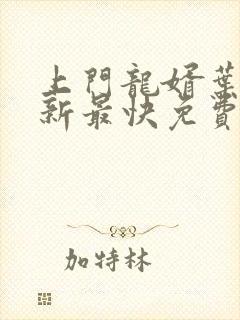 上門龍婿葉
新最快免費
加特林